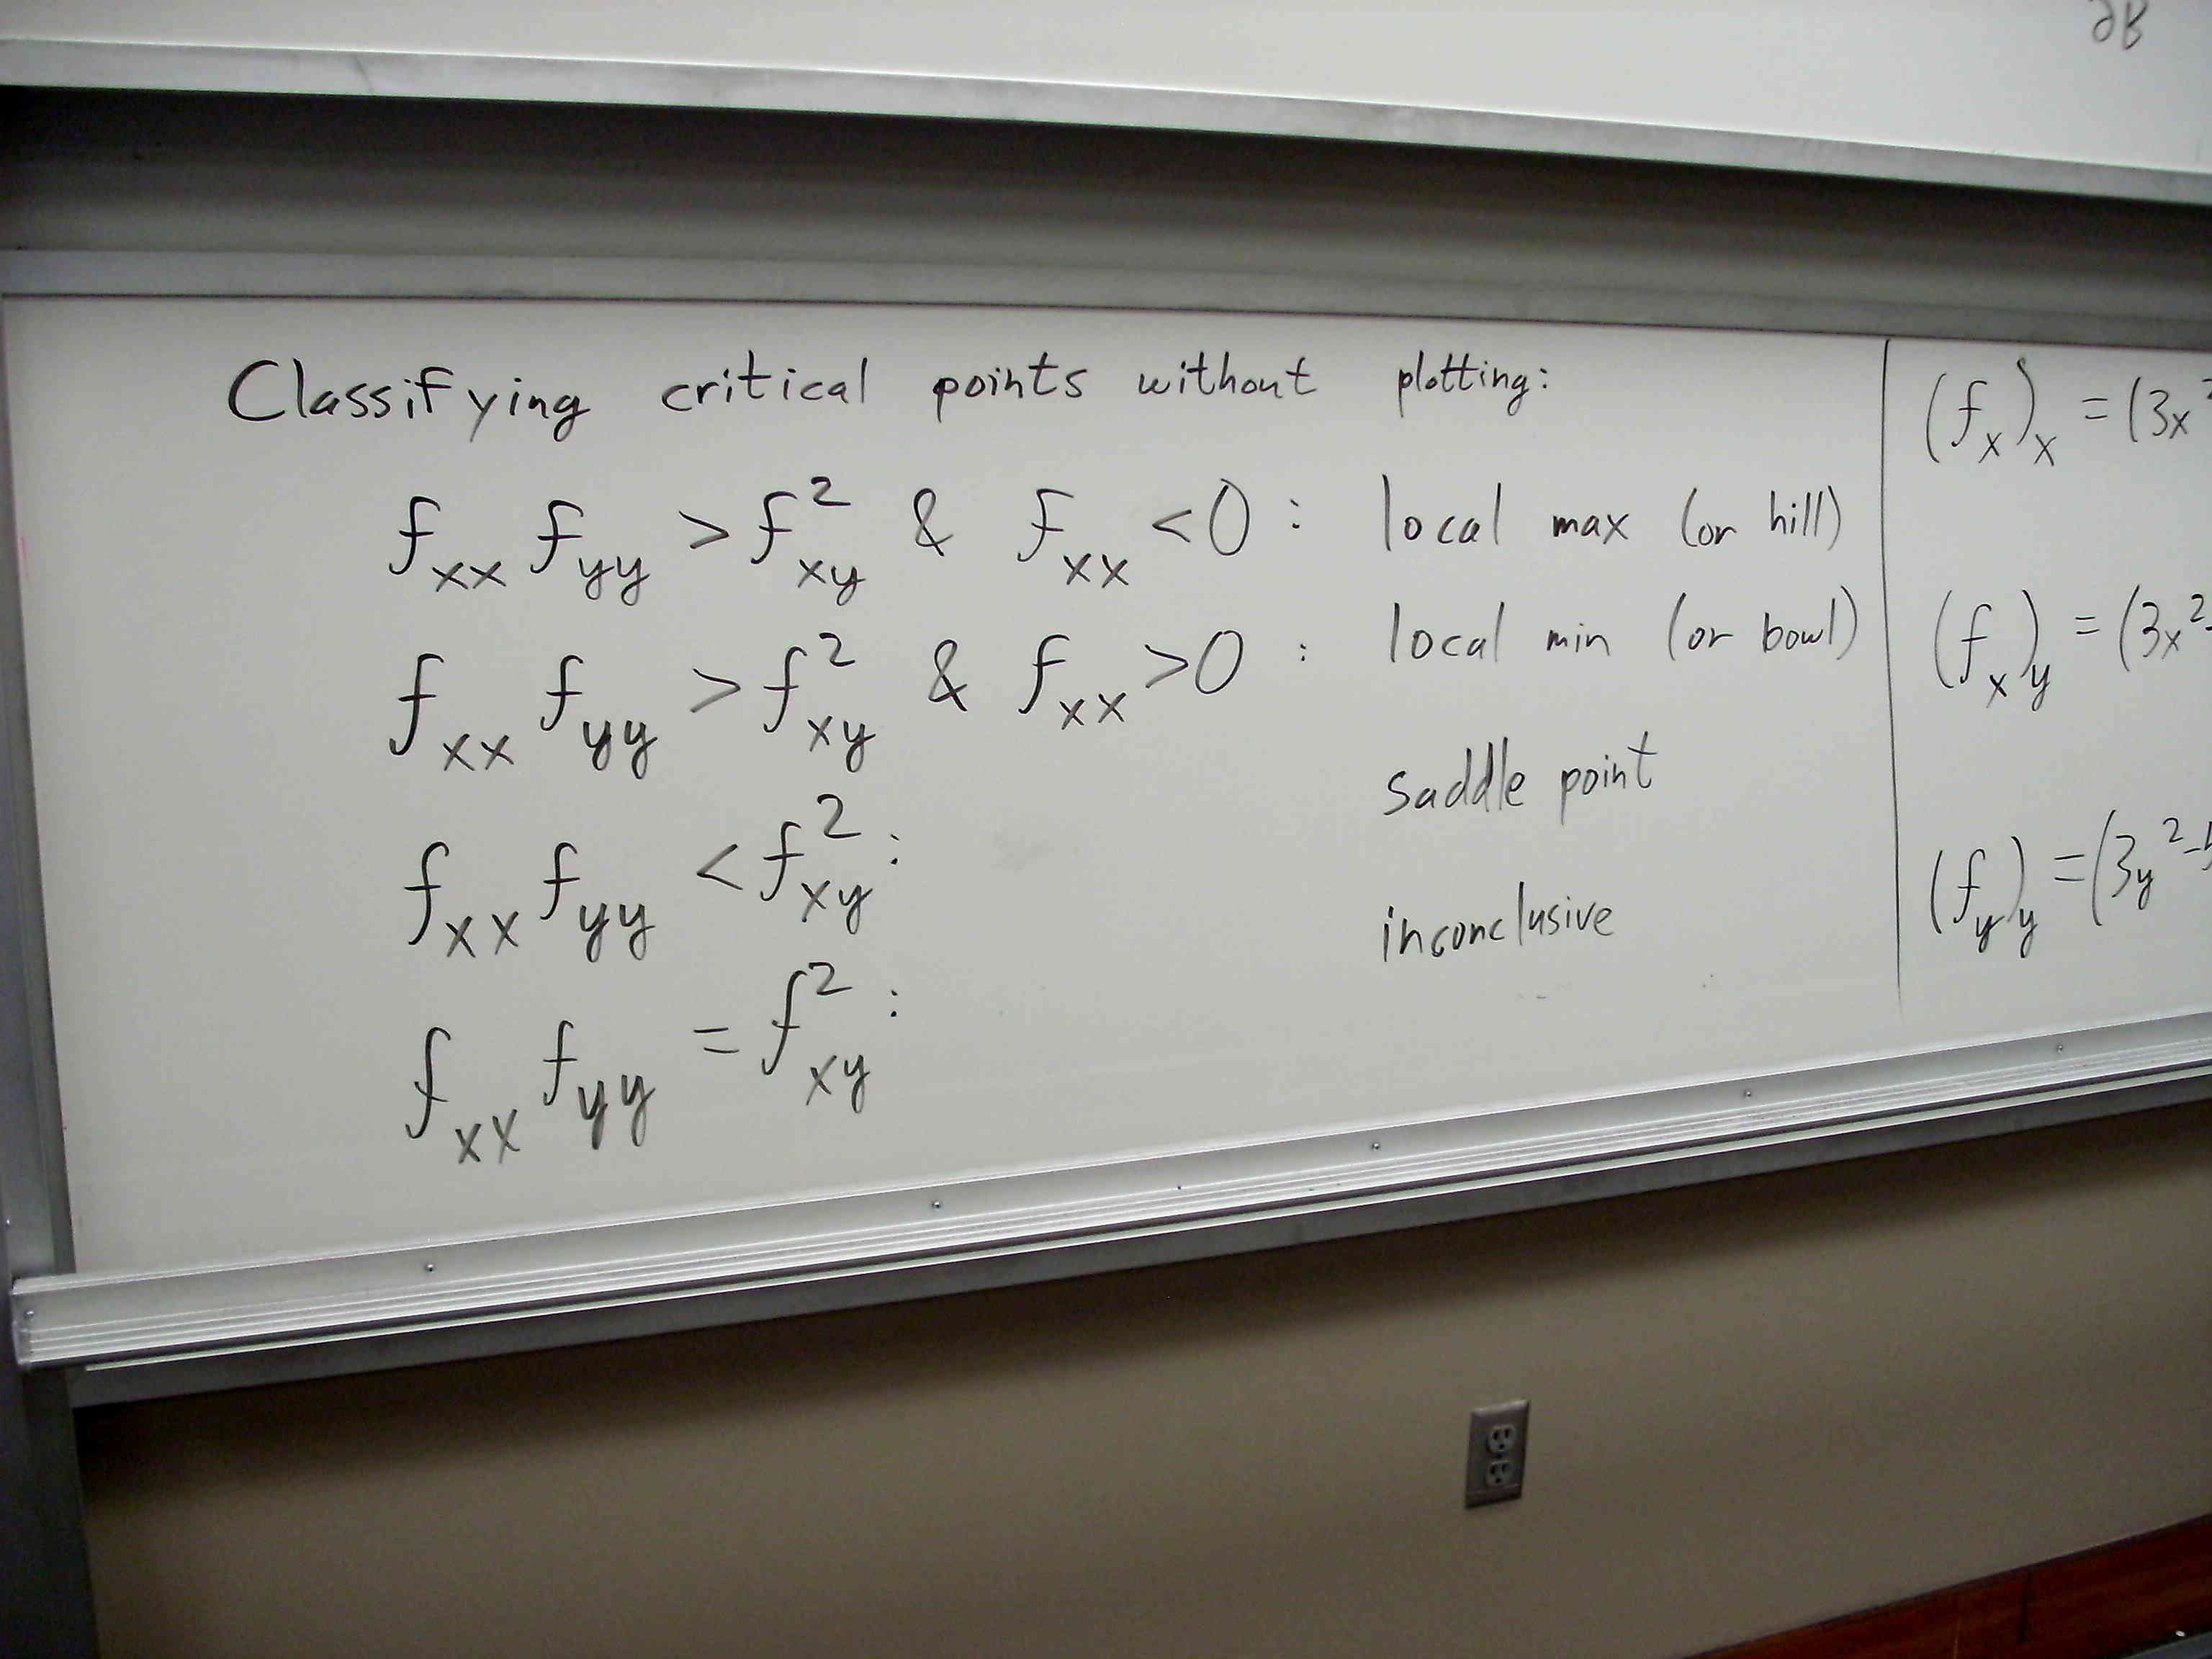 ∂B
Classifying critical points without plotting:
f_xx f_yy > f_xy^2 & f_xx < 0 : local max (or hill)
f_xx f_yy > f_xy^2 & f_xx > 0 : local min (or bowl)
f_xx f_yy < f_xy^2 : saddle point
f_xx f_yy = f_xy^2 : inconclusive
(f_x)_x = (3x
(f_x)_y = (3x^2-
(f_y)_y = (3y^2-